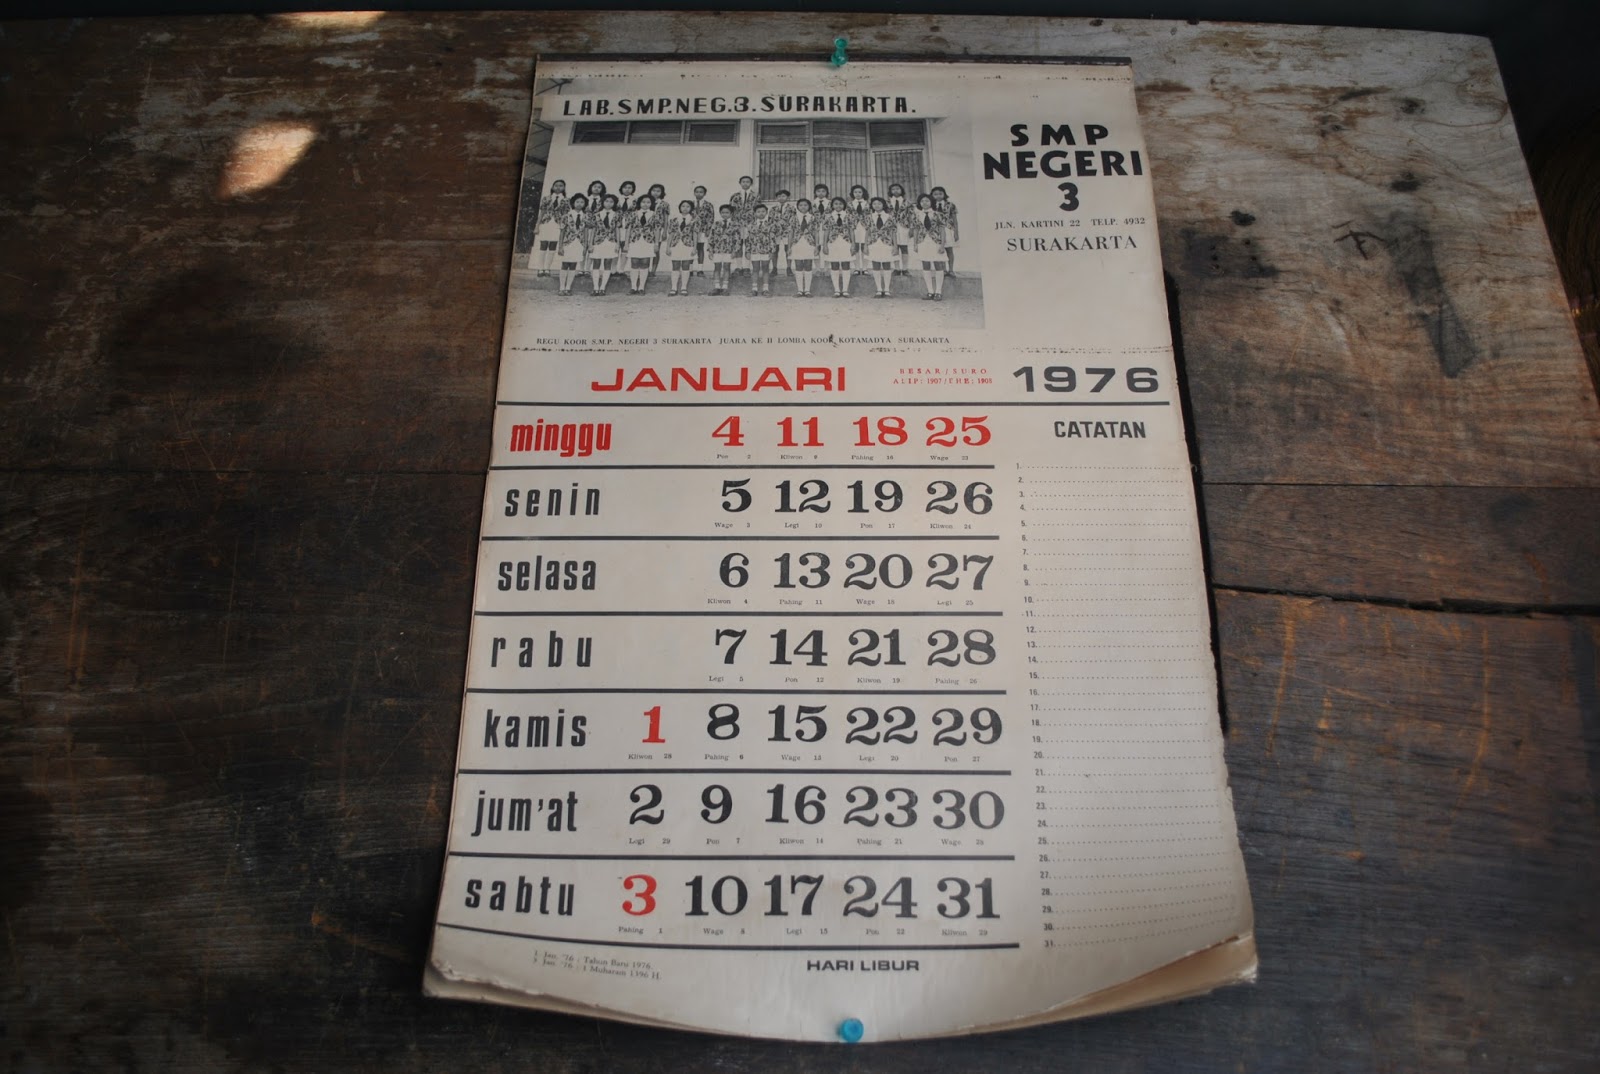 LAB.SMP.NEG.3.SURAKARTA.
SMP
NEGERI
3
JLN. KARTINI 22 TELP. 4932
SURAKARTA
REGU KOOR S.M.P. NEGERI 3 SURAKARTA JUARA KE II LOMBA KOOR KOTAMADYA SURAKARTA
JANUARI
BESAR/SURO
ALIP: 1907/EHE: 1908
1976
minggu 4 11 18 25
Pon 2 Kliwon 9 Pahing 16 Wage 23
senin 5 12 19 26
Wage 3 Legi 10 Pon 17 Kliwon 24
selasa 6 13 20 27
Kliwon 4 Pahing 11 Wage 18 Legi 25
rabu 7 14 21 28
Legi 5 Pon 12 Kliwon 19 Pahing 26
kamis 1 8 15 22 29
Kliwon 28 Pahing 6 Wage 13 Legi 20 Pon 27
jum'at 2 9 16 23 30
Legi 29 Pon 7 Kliwon 14 Pahing 21 Wage 28
sabtu 3 10 17 24 31
Pahing 1 Wage 8 Legi 15 Pon 22 Kliwon 29
CATATAN
1.
2.
3.
4.
5.
6.
7.
8.
9.
10.
11.
12.
13.
14.
15.
16.
17.
18.
19.
20.
21.
22.
23.
24.
25.
26.
27.
28.
29.
30.
31.
1 Jan. '76 : Tahun Baru 1976.
3 Jan. '76 : 1 Muharam 1396 H.
HARI LIBUR